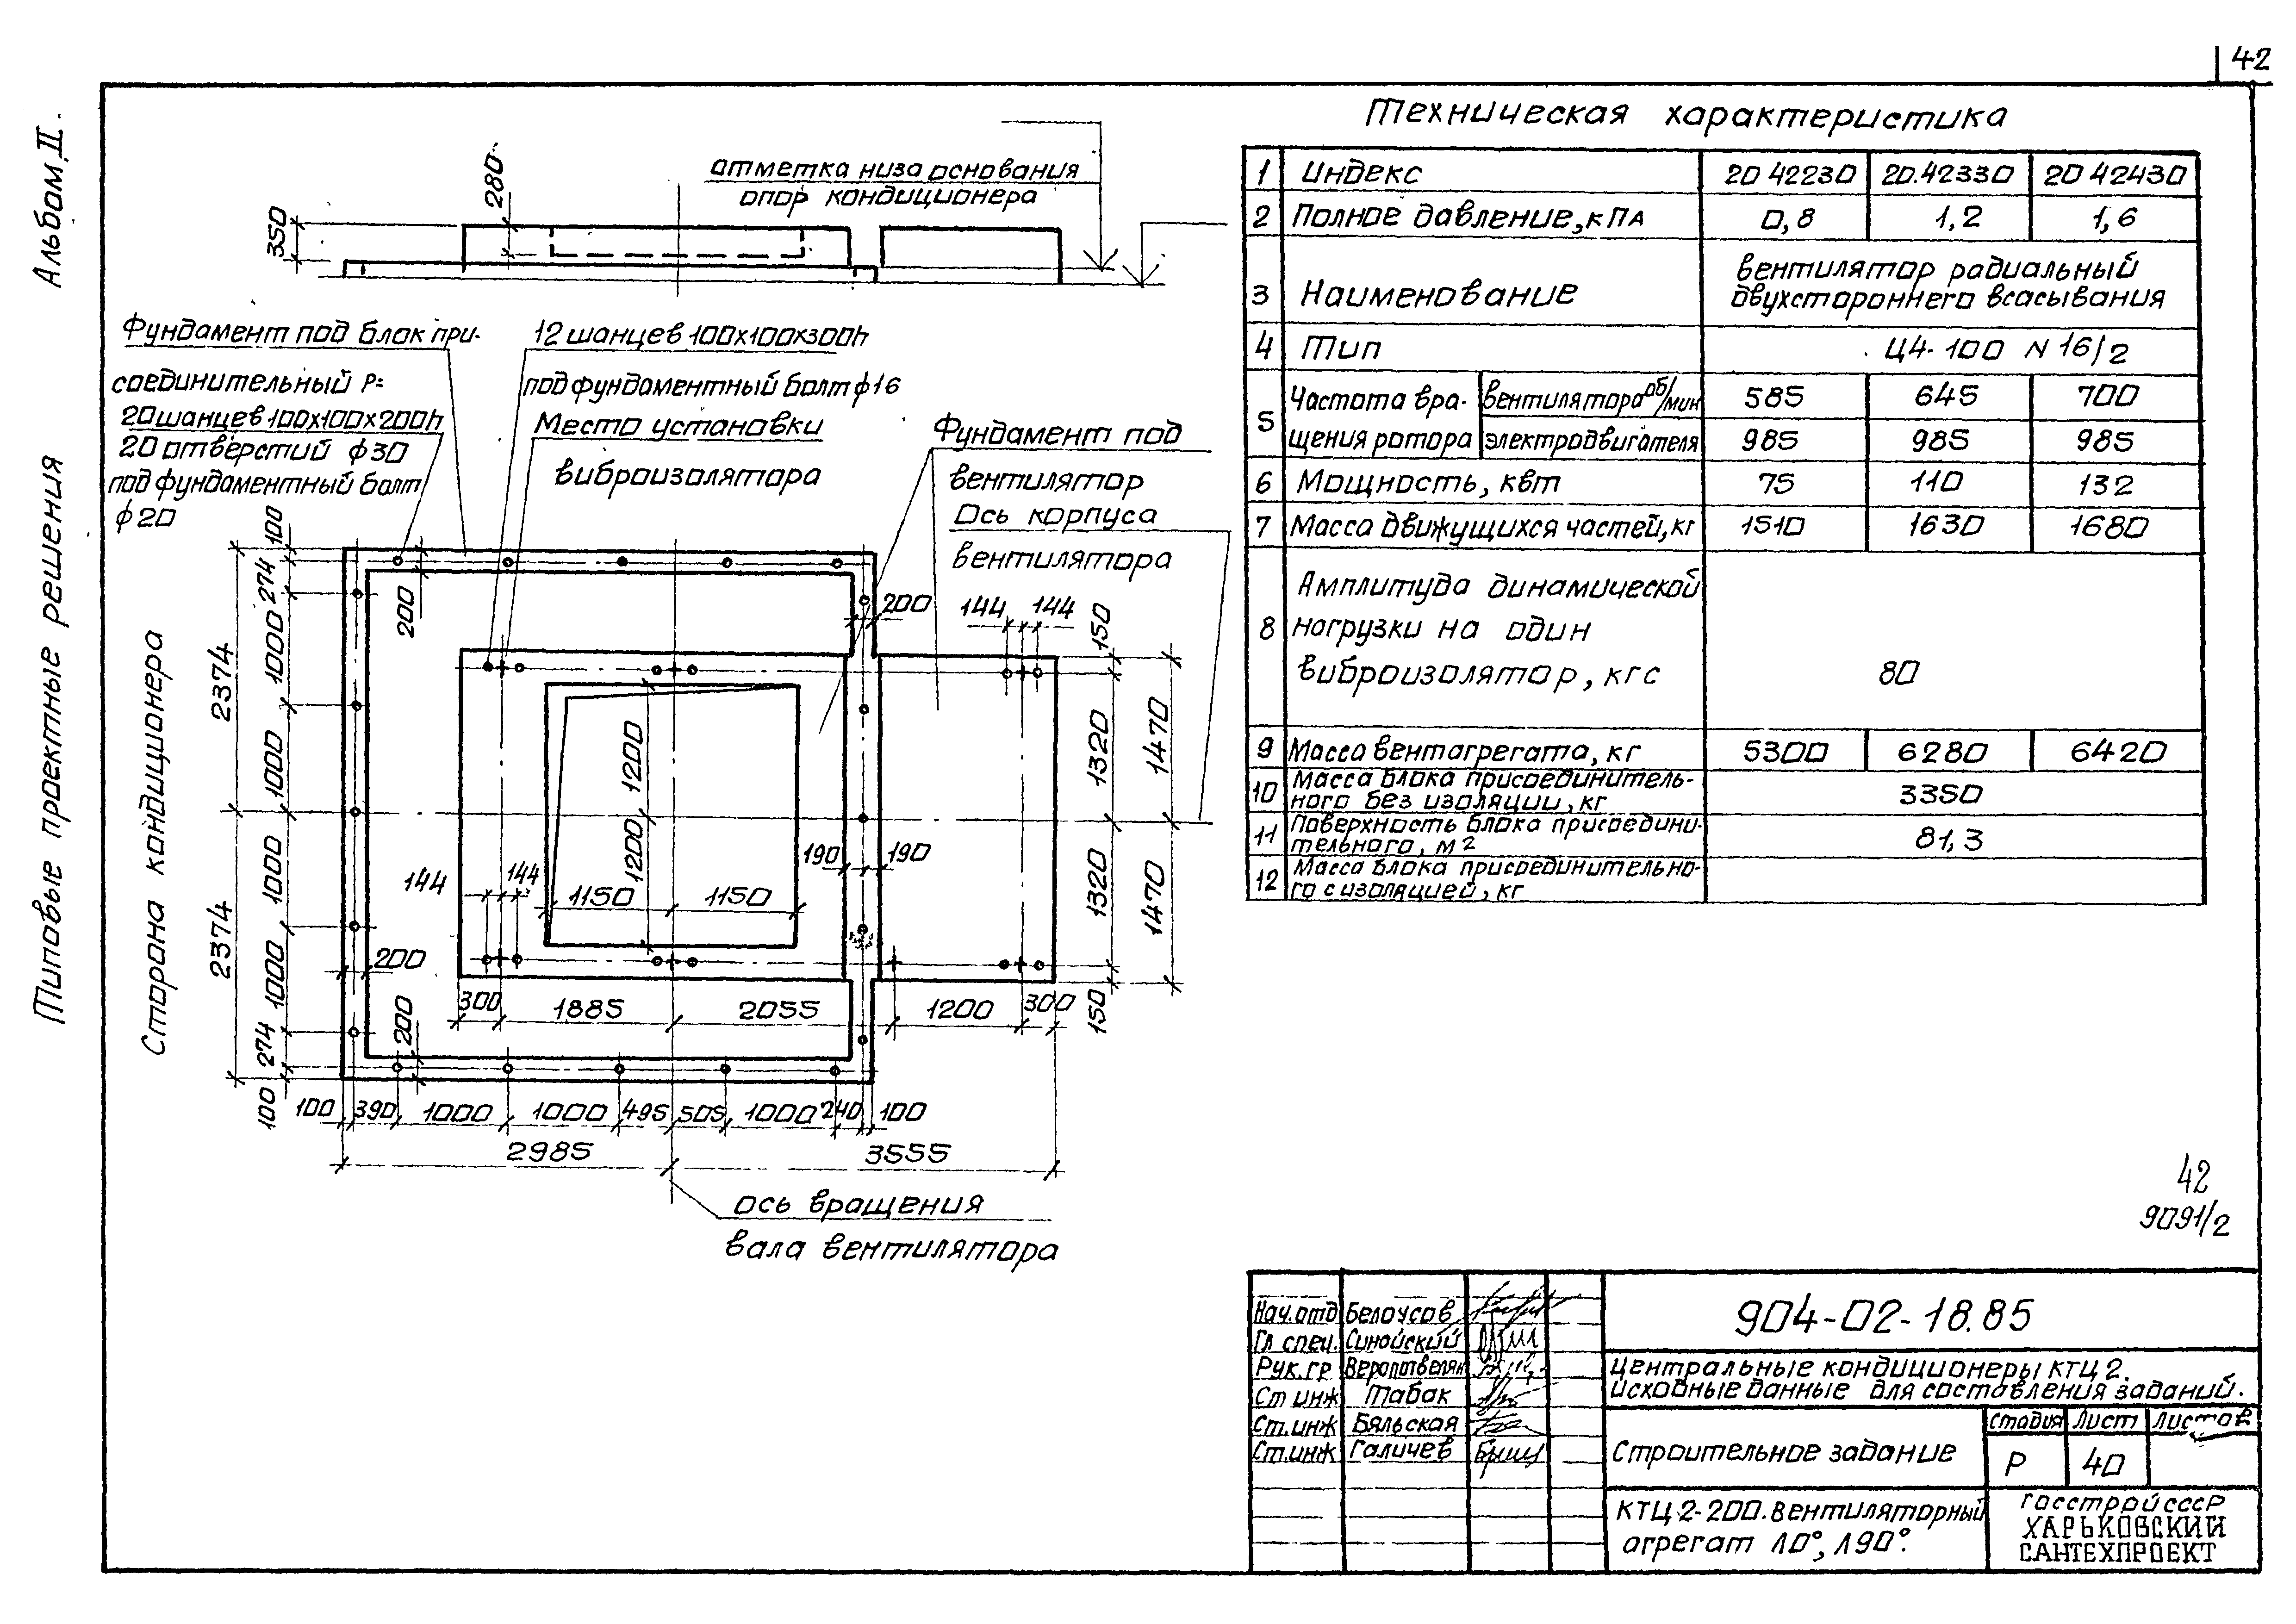 42
Альбом II.
Типовые проектные решения
Сторона кондиционера
280
350
отметка низа основания
опор кондиционера
Фундамент под блок при-
соединительный P=
20 шанцев 100х100х200h
20 отверстий ф30
под фундаментный болт
ф20
12 шанцев 100х100х300h
под фундаментный болт ф16
Место установки
виброизолятора
Фундамент под
вентилятор
Ось корпуса
вентилятора
100
274
1000
1000
1000
1000
274
100
2374
2374
200
200
200
200
144
144
144
144
150
1320
1320
150
1470
1470
1200
1200
1150
1150
190
190
300
1885
2055
1200
300
100
390
1000
1000
495
505
1000
240
100
2985
3555
ось вращения
вала вентилятора
Техническая характеристика
1 Индекс 20 42230 20.42330 20 42430
2 Полное давление, кПА 0,8 1,2 1,6
3 Наименование вентилятор радиальный
двухстороннего всасывания
4 Тип Ц4-100 N 16/2
5 Частота вра- вентилятора об/мин 585 645 700
щения ротора электродвигателя 985 985 985
6 Мощность, квт 75 110 132
7 Масса движущихся частей, кг 1510 1630 1680
Амплитуда динамической
8 нагрузки на один
виброизолятор, кгс 80
9 Масса вентагрегата, кг 5300 6280 6420
10 Масса блока присоединитель-
ного без изоляции, кг 3350
11 Поверхность блока присоедини-
тельного, м2 81,3
12 Масса блока присоединительно-
го с изоляцией, кг
42
9091/2
Нач.отд Белоусов
Гл спец. Синайский
Рук.гр
Ст инж Табак
Ст.инж Бяльская
Ст.инж Галичев
904-02-18.85
Центральные кондиционеры КТЦ 2.
Исходные данные для составления заданий.
Строительное задание
Стадия Лист Листов
Р 40
КТЦ 2-200. Вентиляторный
агрегат Л0°, Л90°.
Госстрой СССР
ХАРЬКОВСКИЙ
САНТЕХПРОЕКТ